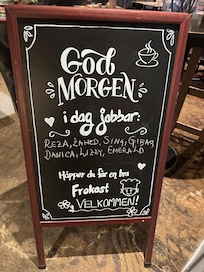 God
MORGEN
i dag jobbar:
REZA, ZAHED, SING, GIBAG
DANICA, LIZZY, EMERALD
Håpper du får en bra
Frokost
VELKOMMEN!